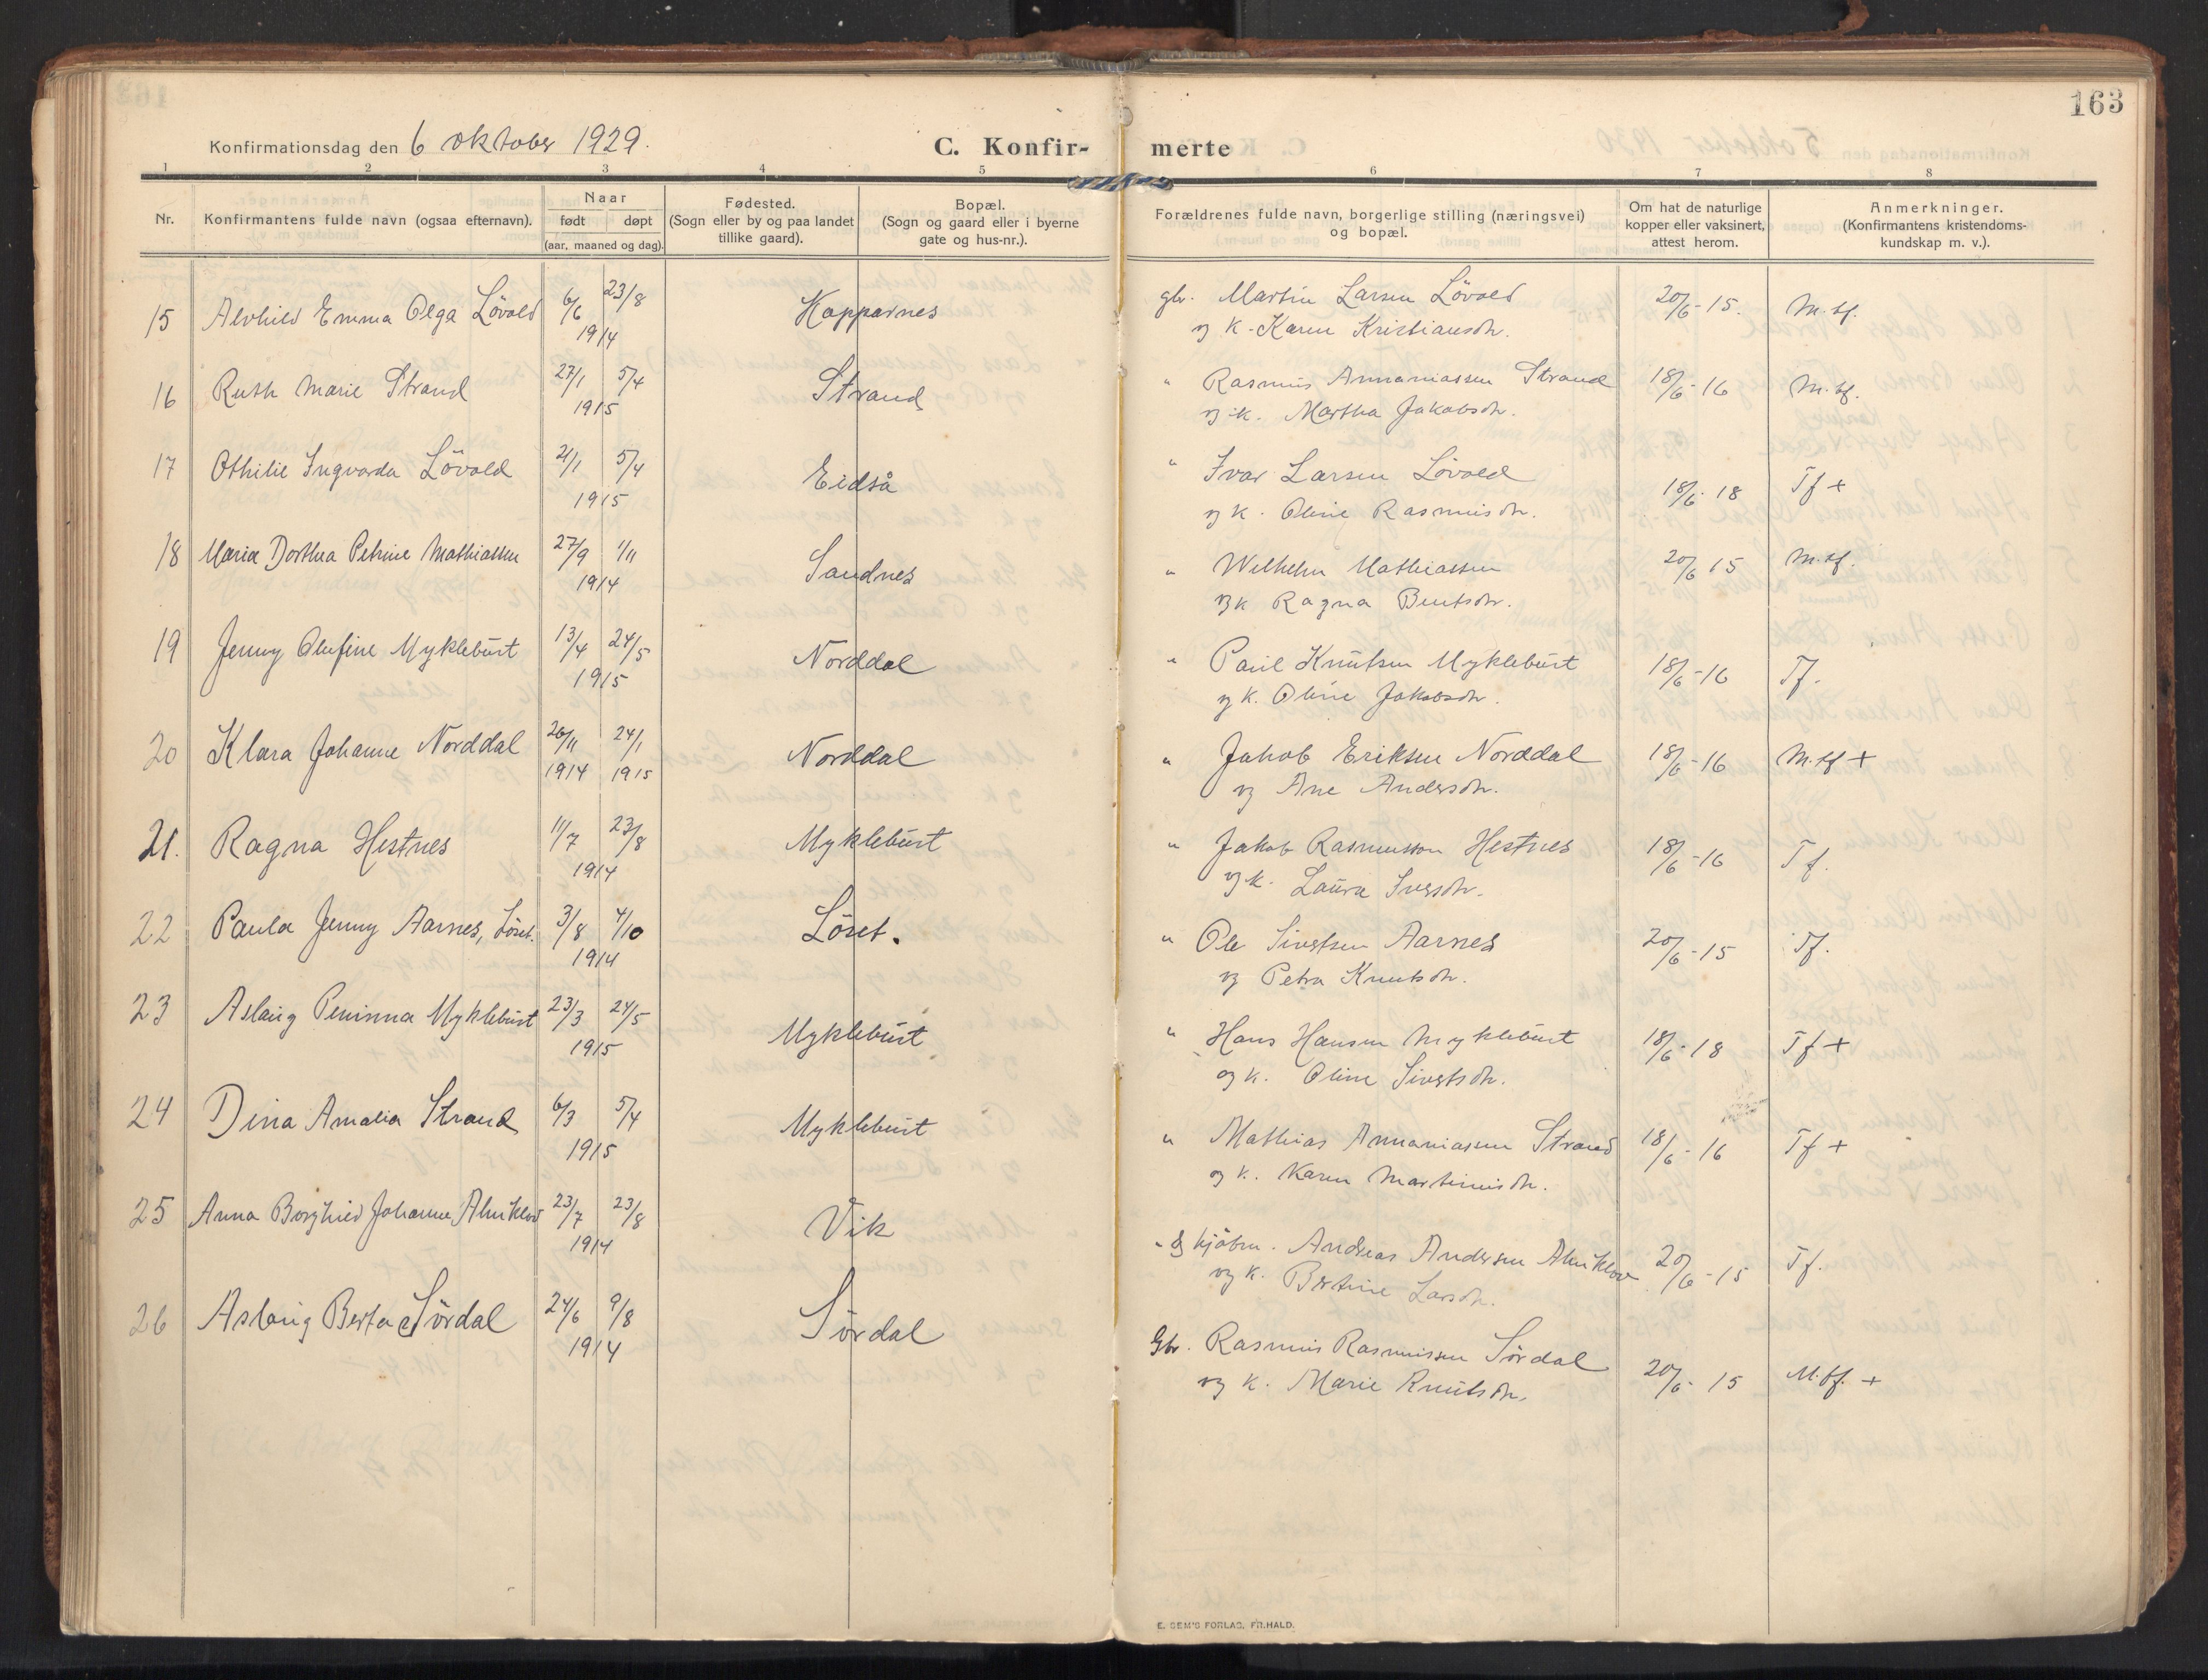 163
Konfirmationsdag den 6 oktober 1929.
C. Konfir-
merte
1 2 3 4 5 6 7 8
Nr.
Konfirmantens fulde navn (ogsaa efternavn).
Naar
født døpt
(aar, maaned og dag).
Fødested.
(Sogn eller by og paa landet
tillike gaard).
Bopæl.
(Sogn og gaard eller i byerne
gate og hus-nr.).
Forældrenes fulde navn, borgerlige stilling (næringsvei)
og bopæl.
Om hat de naturlige
kopper eller vaksinert,
attest herom.
Anmerkninger.
(Konfirmantens kristendoms-
kundskap m. v.).
15 Alvhild Emma Olga Lövold 6/6 23/8 Happarnes gbr. Martin Larsen Lövold 20/6-15. M.tf.
1914 og k. Karen Kristiansdr.
16 Ruth Marie Strand 27/1 5/4 Strand " Rasmus Annaniassen Strand 18/6-16 M.tf.
1915 og k. Martha Jakobsdr.
17 Othilie Ingvarda Lövold 21/1 5/4 Eidså " Ivar Larsen Lövold 18/6-18 Tf +
1915 og k. Oline Rasmusdr.
18 Maria Dorthea Petrine Mathiassen 27/9 1/11 Sandnes " Wilhelm Mathiassen 20/6 15 M.tf.
1914 og k Ragna Bentsdr.
19 Jenny Olufine Myklebust 13/4 24/5 Norddal " Paul Knutsen Myklebust 18/6-16 Tf.
1915 og k. Oline Jakobsdr.
20 Klara Johanne Norddal 26/11 24/1 Norddal " Jakob Eriksen Norddal 18/6-16 M.tf +
1914 1915 og Ane Andersdr.
21. Ragna Hestnes 11/7 23/8 Myklebust " Jakob Rasmusson Hestnes 18/6-16 Tf.
1914 og k. Laura Iversdr.
22 Paula Jenny Aarnes, Löset. 3/8 4/10 Löset. " Ole Sivertsen Aarnes 20/6-15 Tf.
1914 og Petra Knutsdr.
23 Aslaug Peninna Myklebust 23/3 24/5 Myklebust " Hans Hansen Myklebust 18/6-18 Tf +
1915 og k. Oline Sivertsdr.
24 Dina Amalia Strand 6/3 5/4 Myklebust " Mathias Annaniasen Strand 18/6-16 Tf +
1915 og k. Karen Martinusdr.
25 Anna Borghild Johanne Almklov 23/7 23/8 Vik " og kjöbm. Andreas Andersen Almklov 20/6-15 Tf.
1914 og k. Bertine Larsdr.
26 Aslaug Berta Sördal 24/6 9/8 Sördal Gbr. Rasmus Rasmussen Sördal 20/6-15 M.tf. +
1914 og k. Marie Knutsdr.
E. SEM'S FORLAG, FR.HALD.